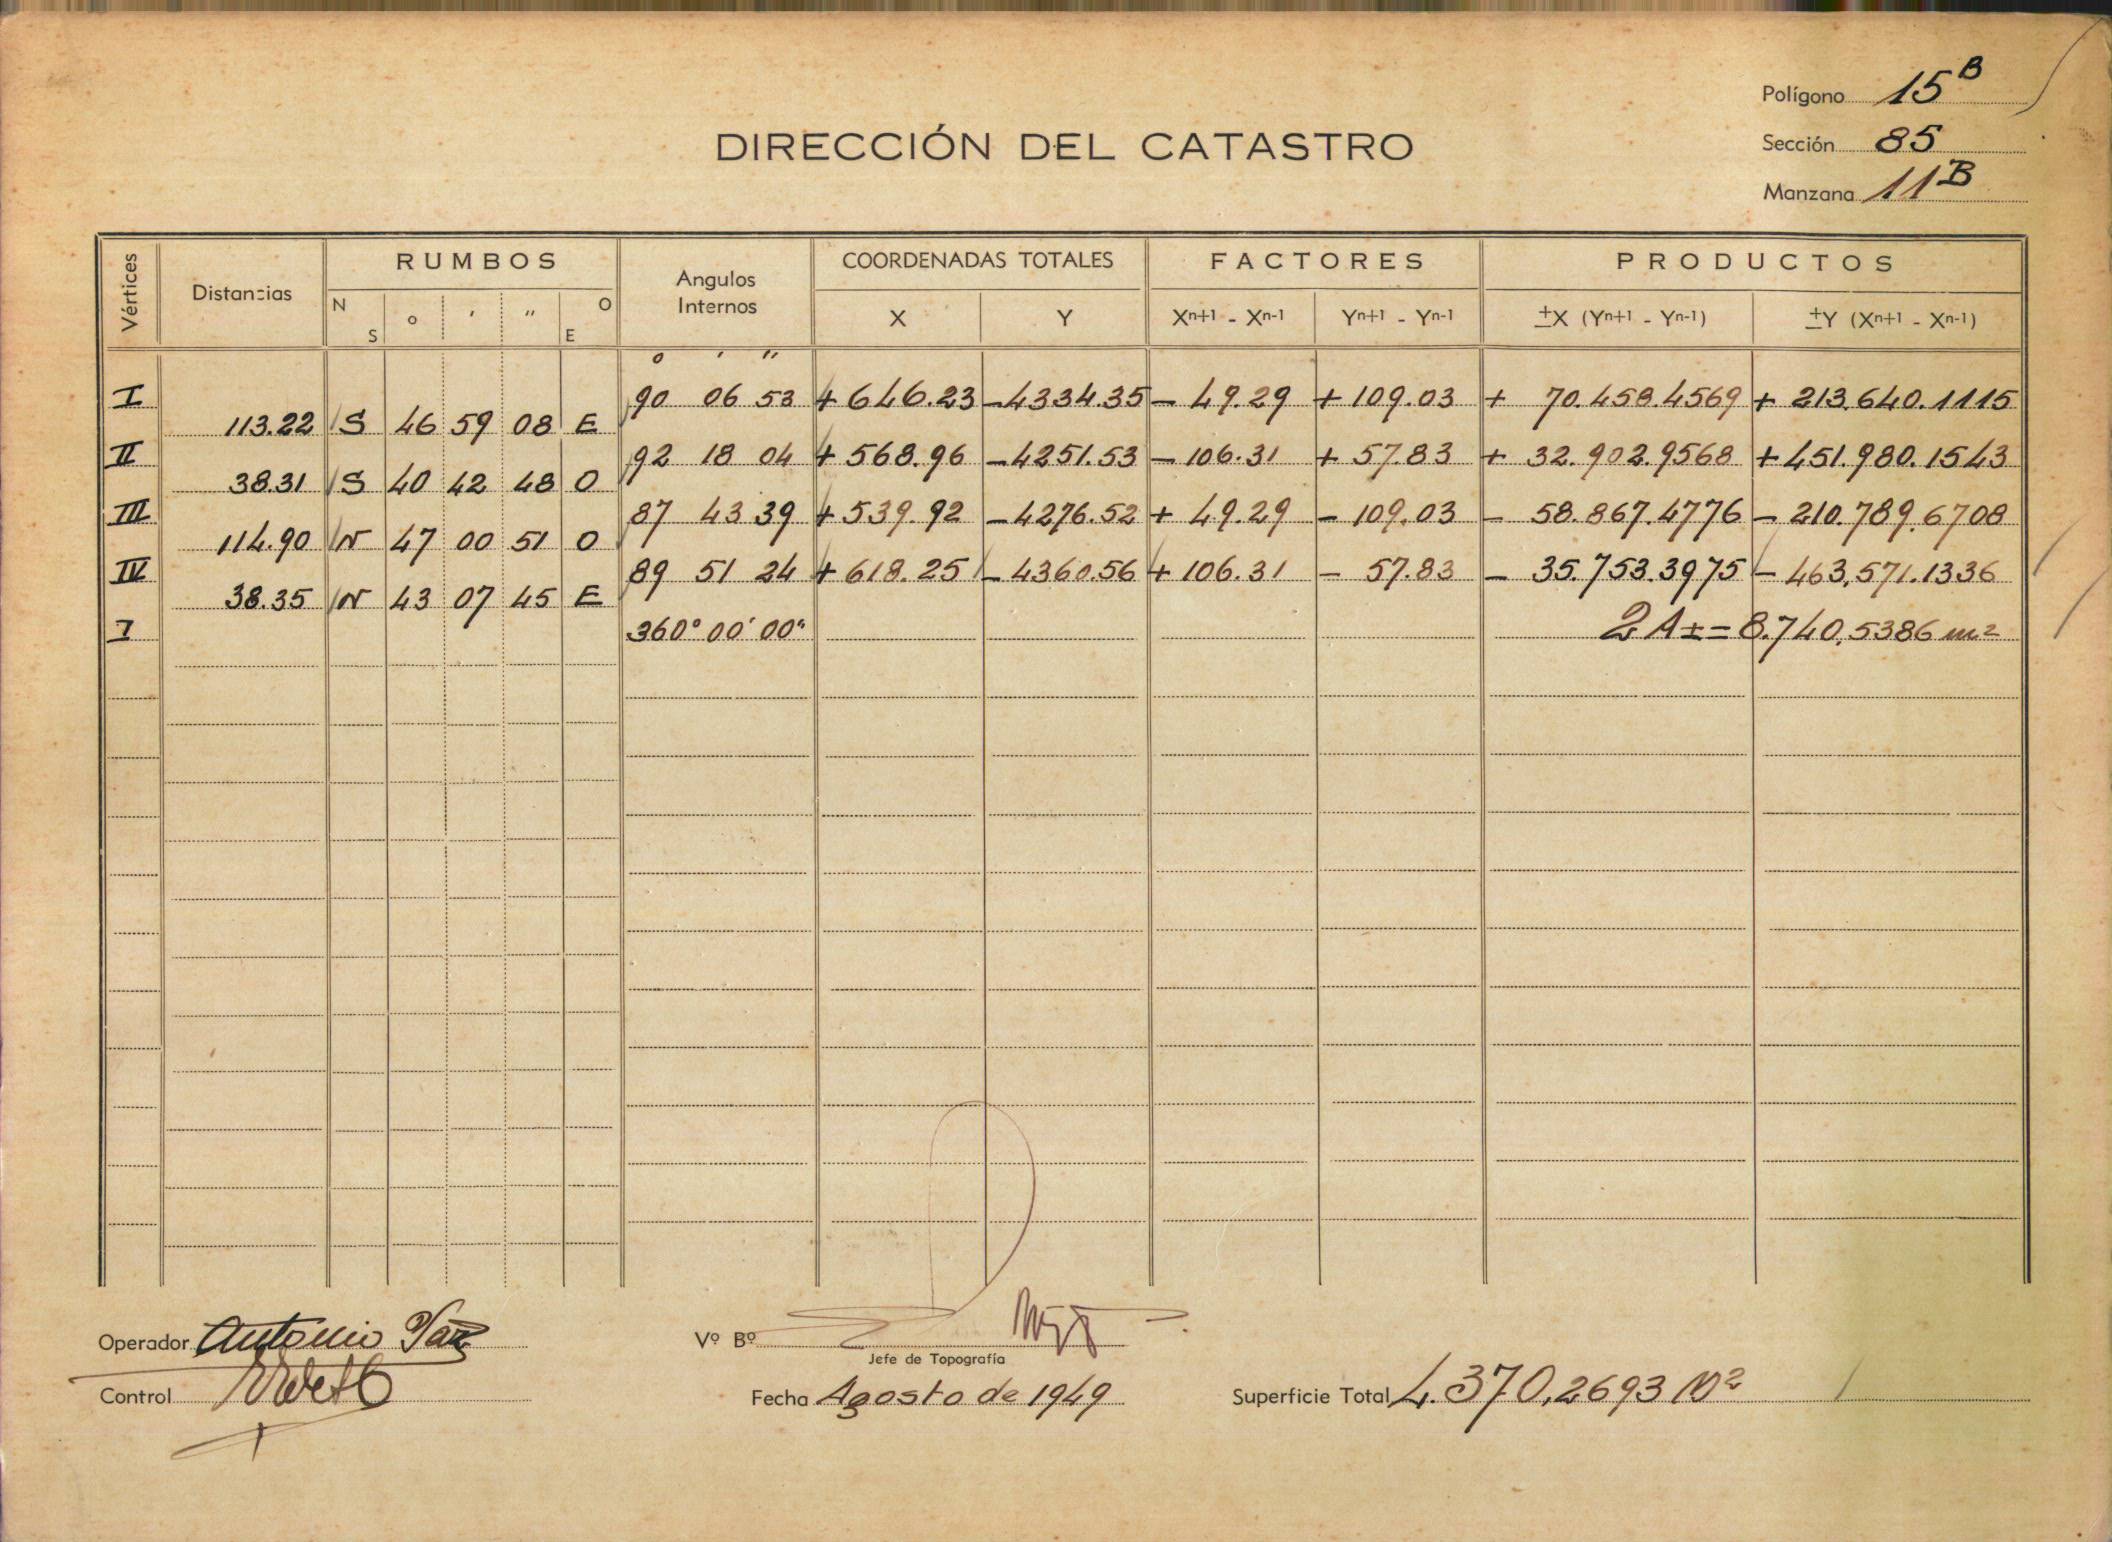 Polígono 15 B
DIRECCIÓN DEL CATASTRO
Sección 85
Manzana 11 B
Vértices Distancias RUMBOS N S ° ' " O E Angulos Internos COORDENADAS TOTALES X Y FACTORES Xn+1 - Xn-1 Yn+1 - Yn-1 PRODUCTOS ±X (Yn+1 - Yn-1) ±Y (Xn+1 - Xn-1)
° ' "
I 90 06 53 +646.23 -4334.35 - 49.29 +109.03 + 70.458.4569 + 213.640.1115
113.22 S 46 59 08 E
II 92 18 04 +568.96 -4251.53 -106.31 + 57.83 + 32.902.9568 +451.980.1543
38.31 S 40 42 48 O
III 87 43 39 +539.92 -4276.52 + 49.29 - 109.03 - 58.867.4776 - 210.789.6708
114.90 N 47 00 51 O
IV 89 51 24 +618.25 -4360.56 +106.31 - 57.83 - 35.753.3975 - 463,571.1336
38.35 N 43 07 45 E
I 360° 00' 00" 2A±=8.740,5386 m2
Operador Antonio Vo Bo
Jefe de Topografía
Control Fecha Agosto de 1949 Superficie Total 4.370,2693 M2